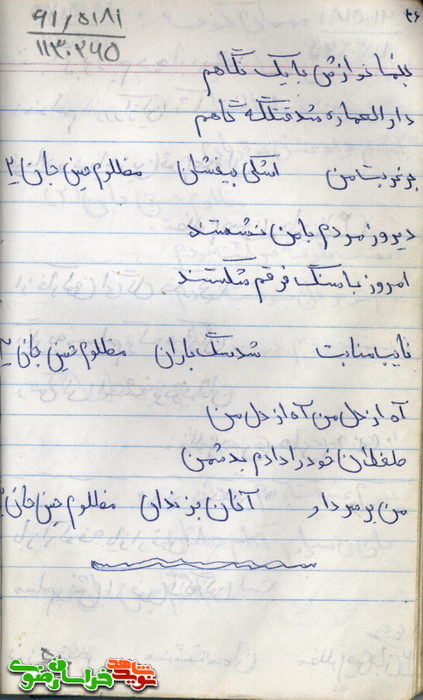 ۳۶
۹۱/۵۱۸۱
۱۱۳۰۲۶۵
بنما نوازش با یک نگاهم
دارالعماره شد قتلگاهم
بر غربت من اشکی بیفشان مظلوم حسین جان ۲
دیروز مردم با من نشستند
امروز با سنگ فرقم شکستند
نایب منابت شد سنگ باران مظلوم حسین جان ۲
آه از دل من آه از دل من
طفلان خود را دادم بدشمن
من بر سر دار آنان بزندان مظلوم حسین جان ۲
نوید شاهد خراسان رضوی